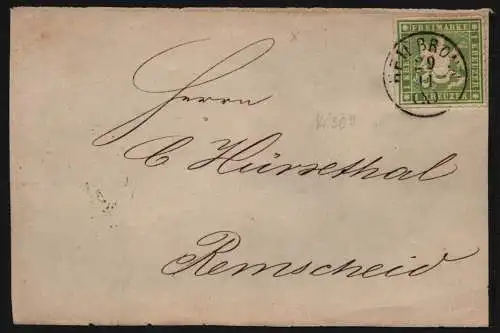 FREIMARKE
HEILBRONN
9
11
Herrn
C Hürxthal
Remscheid